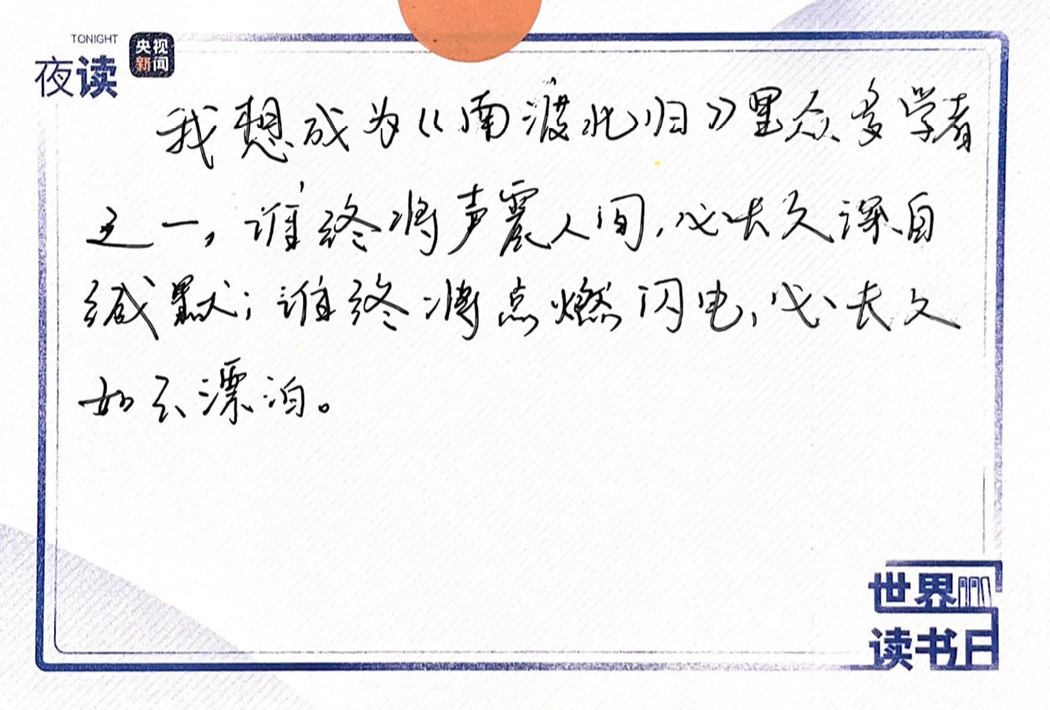 TONIGHT
夜读
央视
新闻
我想成为《南渡北归》里众多学者
之一,谁终将声震人间,必长久深自
缄默;谁终将点燃闪电,必长久
如云漂泊。
世界
读书日